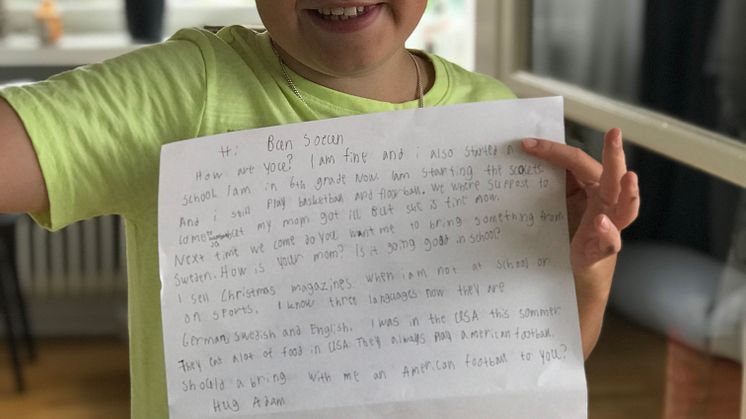 Hi Ben Soeun
How are yoce? I am fine and i also started n
school I am in 6th grade Now. I am starting the scoects
And i still play basketball and floorball. We where suppose to
come but my mom got ill But she is fine now.
Next time we come do you want me to bring something from
Sweden. How is your mom? Is it going good in school?
I sell Christmas magazines when i am not at school or
on sports. I know three languages now they are
German, Swedish and English. I was in the USA this sommer
They eat alot of food in USA. They always play american football.
Should a bring with me an American football to you?
Hug Adam